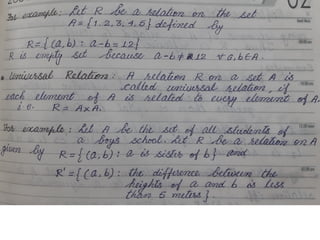 For example: Let R be a relation on the set
A = {1, 2, 3, 4, 5} defined by
R = {(a, b) : a - b = 12}
R is empty set because a - b ≠ 12 ∀ a, b ∈ A.
• Universal Relation: A relation R on a set A is
called universal relation, if
each element of A is related to every element of A.
i.e. R = A×A.
For example: Let A be the set of all students of
a boys school. Let R be a relation on A
given by R = {(a, b) : a is sister of b} and
R' = {(a, b) : the difference between the
heights of a and b is less
than 5 meters}.